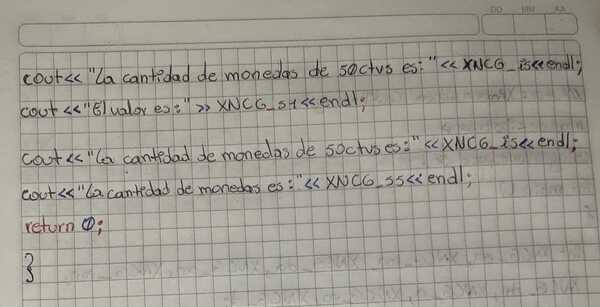 DD MM AA
cout<< "La cantidad de monedas de 50ctvs es:" << XNCG_is<<endl;
cout <<"El valor es:" >> XNCG_s1<<endl;
cout<< "La cantidad de monedas de 50ctvs es:" <<XNCG_is<<endl;
cout<< "La cantidad de monedas es:" << XNCG_ss<<endl;
return 0;
}